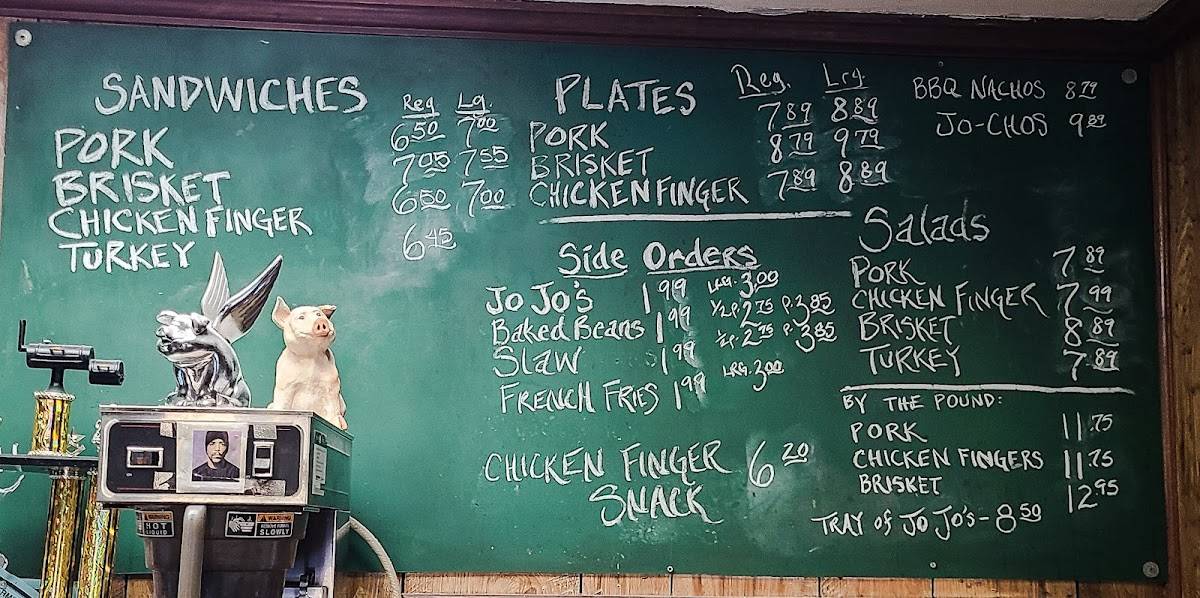 SANDWICHES Reg Lg.
PORK 6.50 7.00
BRISKET 7.05 7.55
CHICKEN FINGER 6.50 7.00
TURKEY 6.45
PLATES Reg. Lrg.
PORK 7.89 8.89
BRISKET 8.79 9.79
CHICKEN FINGER 7.89 8.89
BBQ NACHOS 8.79
JO-CHOS 9.89
Side Orders
JO JO'S 1.99 LRG. 3.00
Baked Beans 1.99 1/2 P. 2.75 P. 3.85
SLAW 1.99 1/2 P. 2.75 P. 3.85
FRENCH FRIES 1.99 LRG. 3.00
CHICKEN FINGER SNACK 6.20
Salads
PORK 7.89
CHICKEN FINGER 7.99
BRISKET 8.89
TURKEY 7.89
BY THE POUND:
PORK 11.75
CHICKEN FINGERS 11.75
BRISKET 12.95
TRAY OF JO JO'S - 8.50
WARNING
HOT
LIQUID
WARNING
SLOWLY